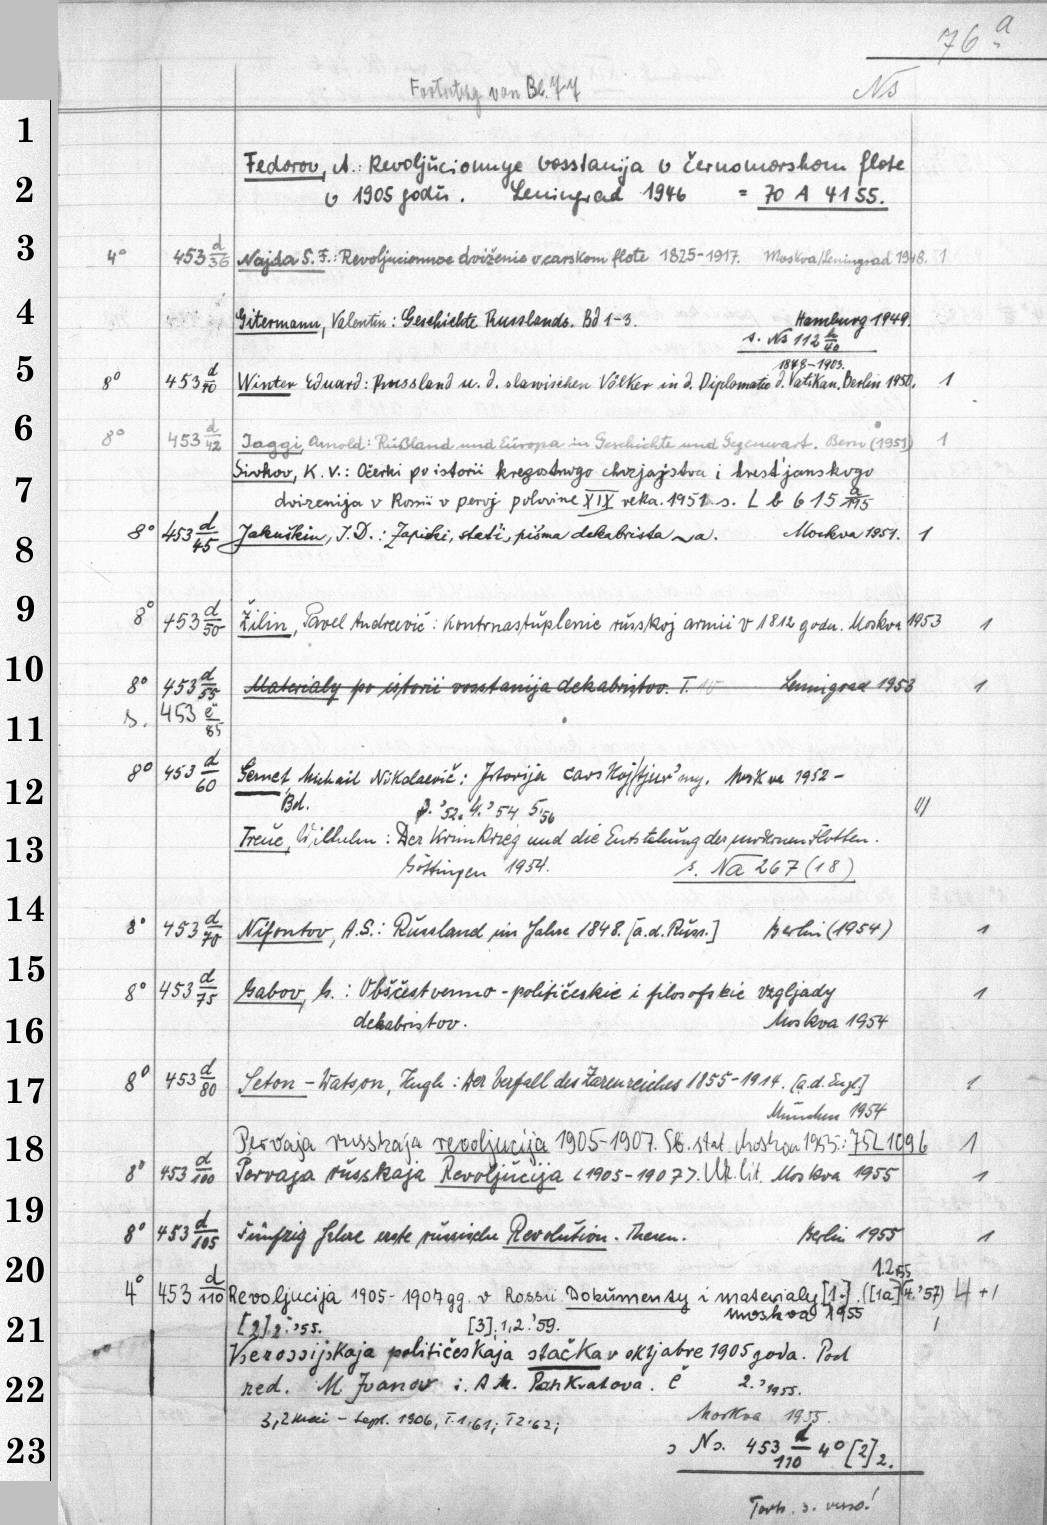 76 a
Fortsetzg von Bl. 77
Ns
1
Fedorov, A.: Revoljučionnye vosstanija v černomorskom flote
2
v 1905 godu. Leningrad 1946 = 70 A 4155.
3
4° 453 d/36 Najda S. F.: Revoljucionnoe dviženie v carskom flote 1825-1917. Moskva/Leningrad 1948. 1
4
Gitermann, Valentin: Geschichte Russlands. Bd 1-3. Hamburg 1949.
s. Ns 112 h/40
5
1878-1903.
8° 453 d/40 Winter Eduard: Russland u. d. slawischen Völker in d. Diplomatie d. Vatikan. Berlin 1950. 1
6
8° 453 d/42 Jaggi, Arnold: Rußland und Europa in Geschichte und Gegenwart. Bern (1951) 1
Sivkov, K. V.: Očerki po istorii krepostnogo chozjajstva i krest'janskogo
7
dvizenija v Rossii v pervoj polovine XIX veka. 1951 s. L b 615 a/195
8
8° 453 d/45 Jakuškin, I. D.: Zapiski, stat'i, pis'ma dekabrista ~a. Moskva 1951. 1
9
8° 453 d/50 Žilin, Pavel Andreevič: Kontrnastuplenie russkoj armii v 1812 godu. Moskva 1953 1
10
8° 453 d/55 Materialy po istorii vosstanija dekabristov. T. Leningrad 1953 1
11
s. 453 e/85
8° 453 d/60 Gernet Michail Nikolaevič: Istorija carskoj tjur'my. Moskva 1952 -
12
Bd. 3.'52. 4.'54 5'56 III
13
Treue, Wilhelm: Der Krimkrieg und die Entstehung der modernen Flotten.
Göttingen 1954. s. Na 267 (18)
14
8° 453 d/70 Nifontov, A. S.: Russland im Jahre 1848. [a. d. Russ.] Berlin (1954) 1
15
8° 453 d/75 Gabov, G.: Obščestvenno-političeskie i filosofskie vzgljady 1
16
dekabristov. Moskva 1954
17
8° 453 d/80 Seton-Watson, Hugh: Der Verfall des Zarenreiches 1855-1914. [a. d. Engl.] 1
München 1954
18
Pervaja russkaja revoljucija 1905-1907. Sb. stat. Moskva 1955: 75L1096 1
8° 453 d/100 Pervaja russkaja Revoljucija <1905-1907>. Uk. lit. Moskva 1955 1
19
8° 453 d/105 Fünfzig Jahre erste russische Revolution. Thesen. Berlin 1955 1
20
1.2.'55
4° 453 d/110 Revoljucija 1905-1907 gg. v Rossii Dokumenty i materialy [1.] ([1a] 4.'57) 4+1
Moskva 1955
21
[2] 2.'55. [3]. 1,2.'59. 1
Vserossijskaja političeskaja stačka v oktjabre 1905 goda. Pod
22
red. M Ivanov i. A. M. Pankratova. č 2.'1955.
3,2 Mai - Sept. 1906, T.1.'61; T2.'62; Moskva 1955.
23
s Ns. 453 d/110 4° [2] 2.
Forts. s. verso!